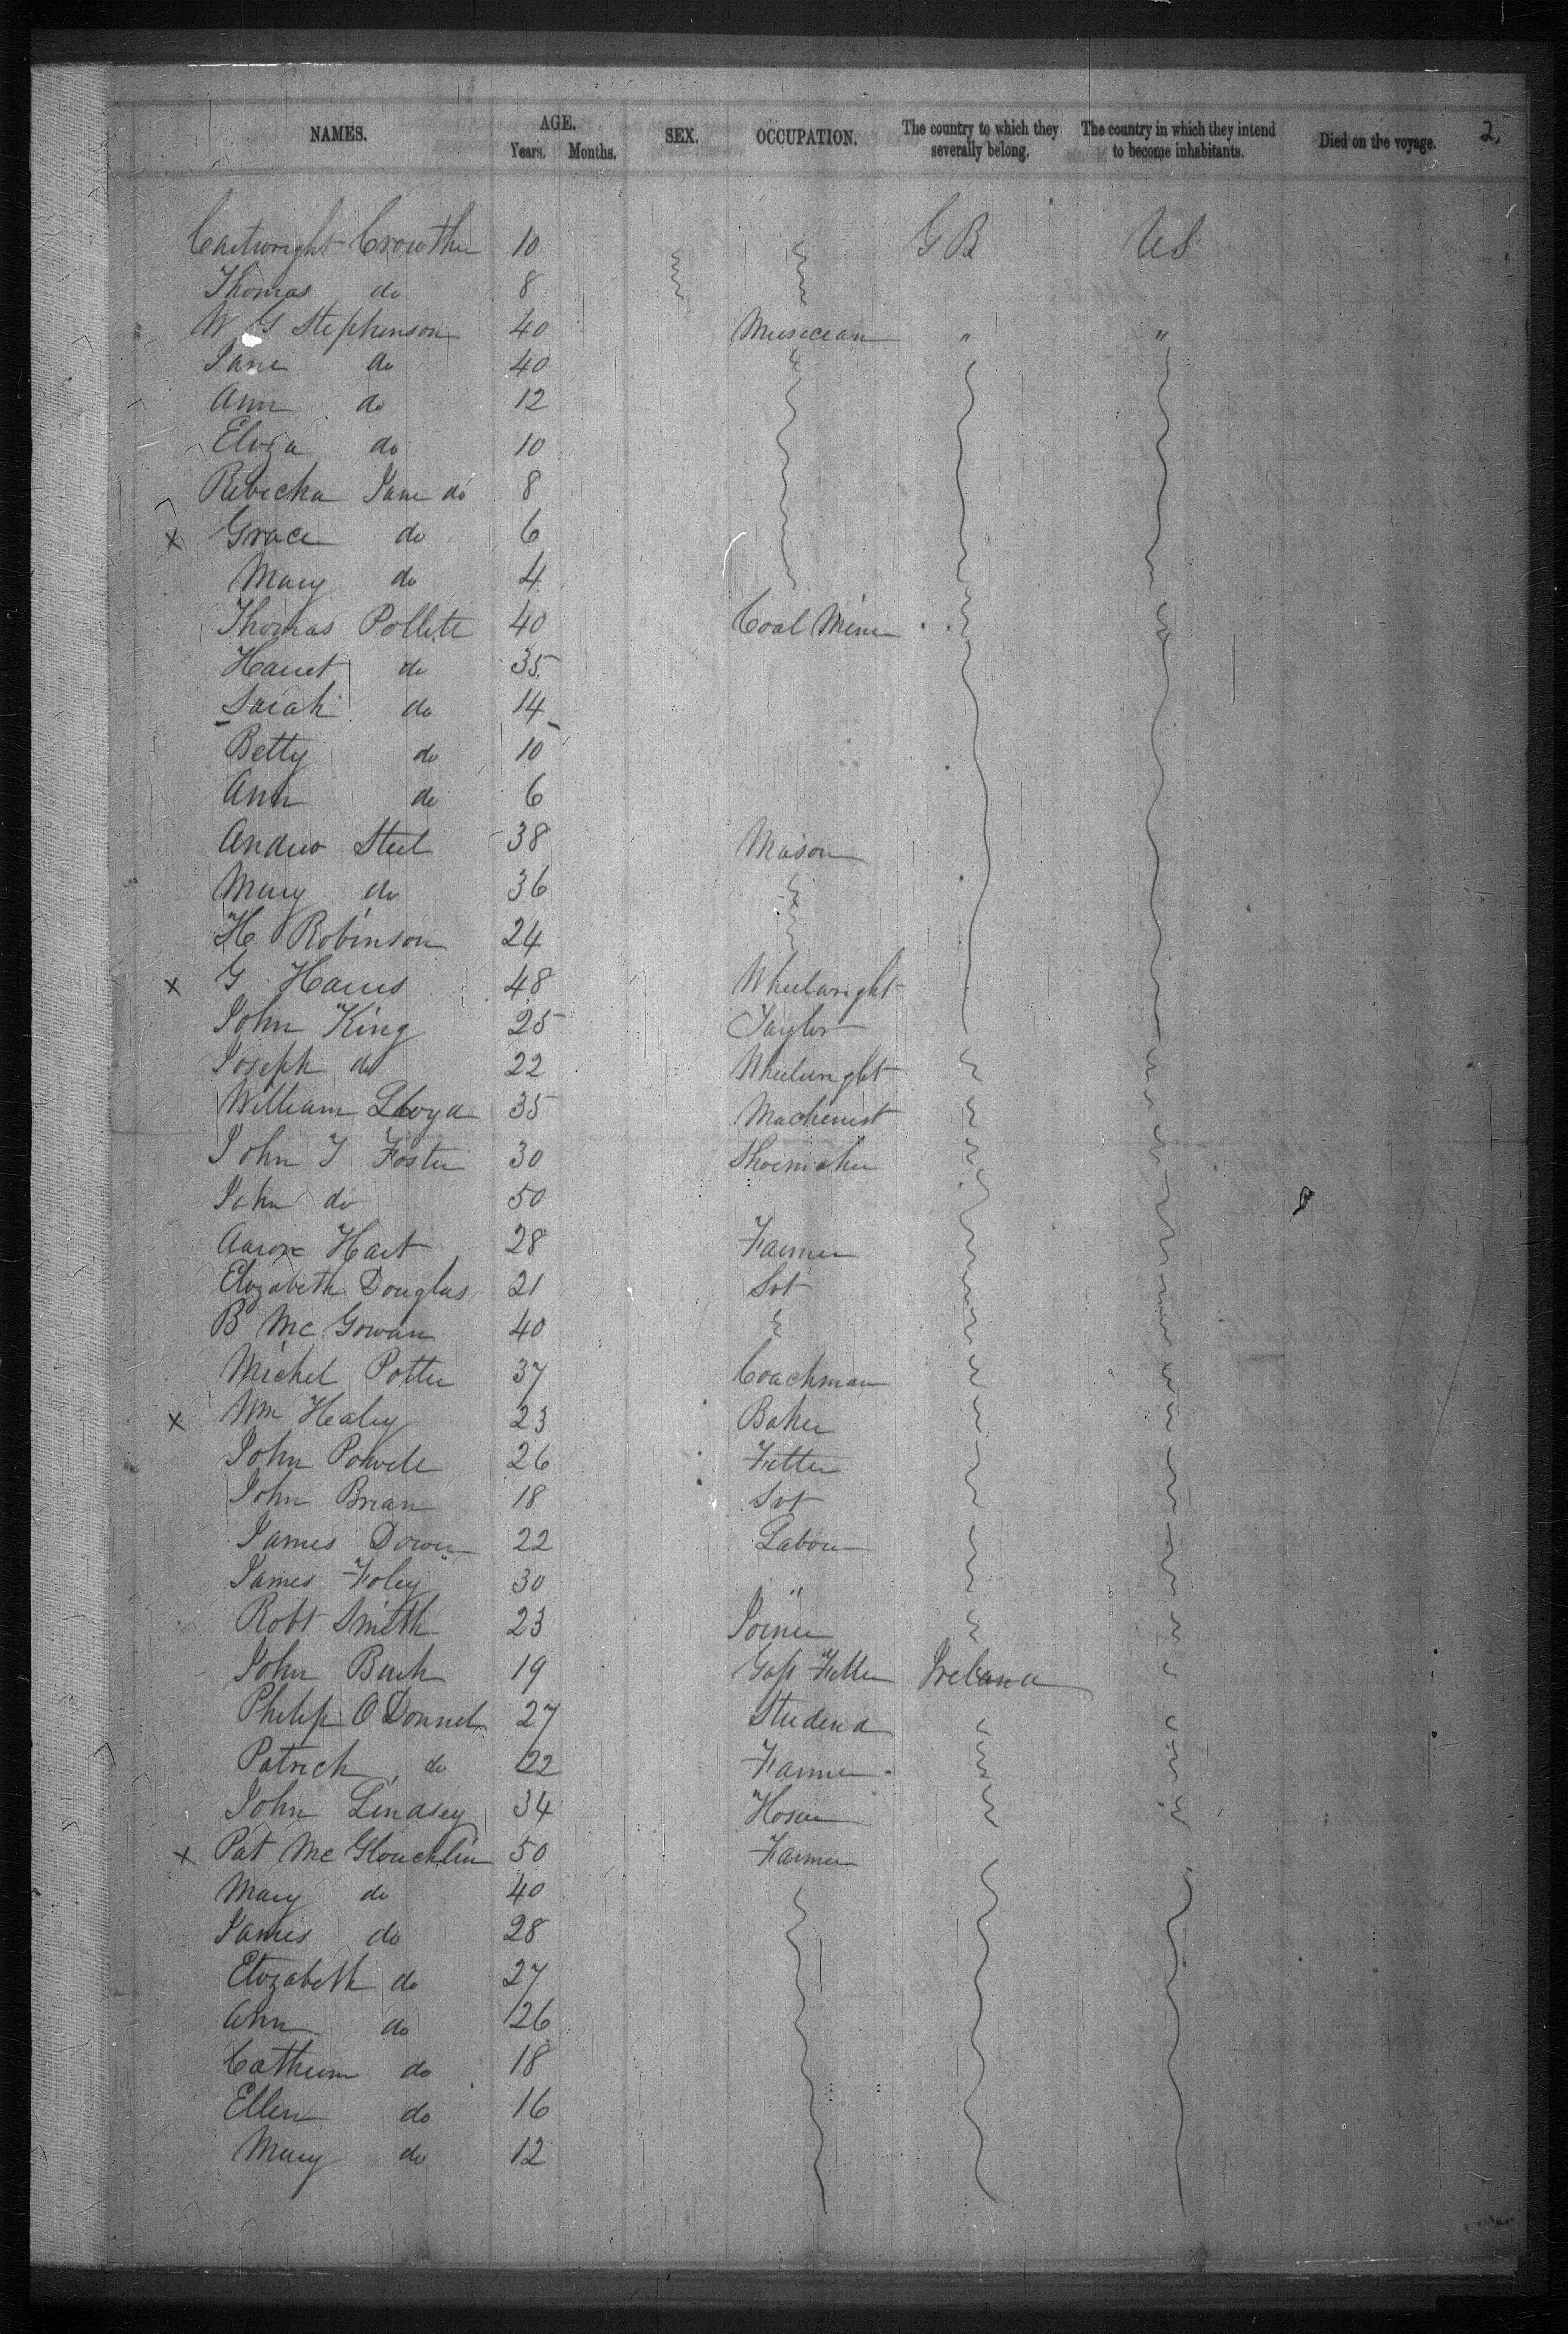 NAMES. AGE. Years. Months. SEX. OCCUPATION. The country to which they severally belong. The country in which they intend to become inhabitants. Died on the voyage. 2,
Cartwright Crowther 10 GB US
Thomas do 8
W G Stephenson 40 Musician " "
Jane do 40
Ann do 12
Eliza do 10
Rebicka Jane do 8
x Grace do 6
Mary do 4
Thomas Pollitt 40 Coal Miner
Harriet do 35
Sarah do 14
Betty do 10
Ann do 6
Andrew Steel 38 Mason
Mary do 36
H Robinson 24
x G Harris 48 Wheelwright
John King 25 Taylor
Joseph do 22 Wheelwright
William Lloyd 35 Machinist
John J Foster 30 Shoemaker
John do 50
Aaron Hart 28 Farmer
Elizabeth Douglas 21 Svt
B Mc Gowan 40
Michel Potter 37 Coachman
x Wm Healey 23 Baker
John Powell 26 Fitter
John Brian 18 Svt
James 22 Labour
James Foley 30 "
Robt Smith 23 Joiner
John Burk 19 Gass Fitter Ireland
Philip O Donnel 27 Studend
Patrick do 22 Farmer
John Lindsey 34 Hosier
x Pat Mc Glouchlin 50 Farmer
Mary do 40
James do 28
Elizabeth do 27
Ann do 26
Cathern do 18
Ellen do 16
Mary do 12